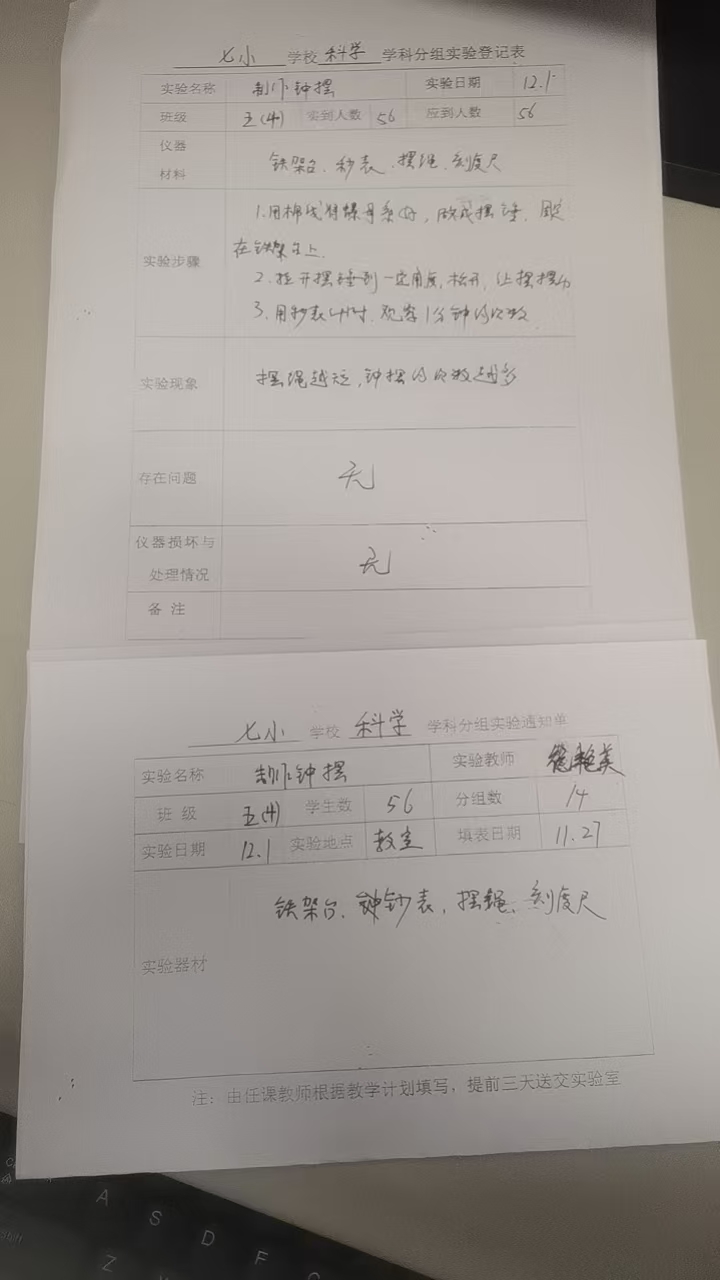 七小 学校 科学 学科分组实验登记表
实验名称 制作钟摆 实验日期 12.1
班级 五(4) 实到人数 56 应到人数 56
仪器
材料
铁架台、秒表、摆绳、刻度尺
实验步骤
1.用棉线将螺母系好，做成摆锤，固定
在铁架台上.
2.拉开摆锤到一定角度，松开，让摆摆动
3.用秒表计时.观察1分钟的次数
实验现象 摆绳越短，钟摆的次数越多
存在问题 无
仪器损坏与
处理情况
无
备 注
七小 学校 科学 学科分组实验通知单
实验名称 制作钟摆 实验教师 艳美
班 级 五(4) 学生数 56 分组数 14
实验日期 12.1 实验地点 教室 填表日期 11.27
铁架台、钞表，摆绳、刻度尺
实验器材
注：由任课教师根据教学计划填写，提前三天送交实验室
A
S
D
F
G
Z